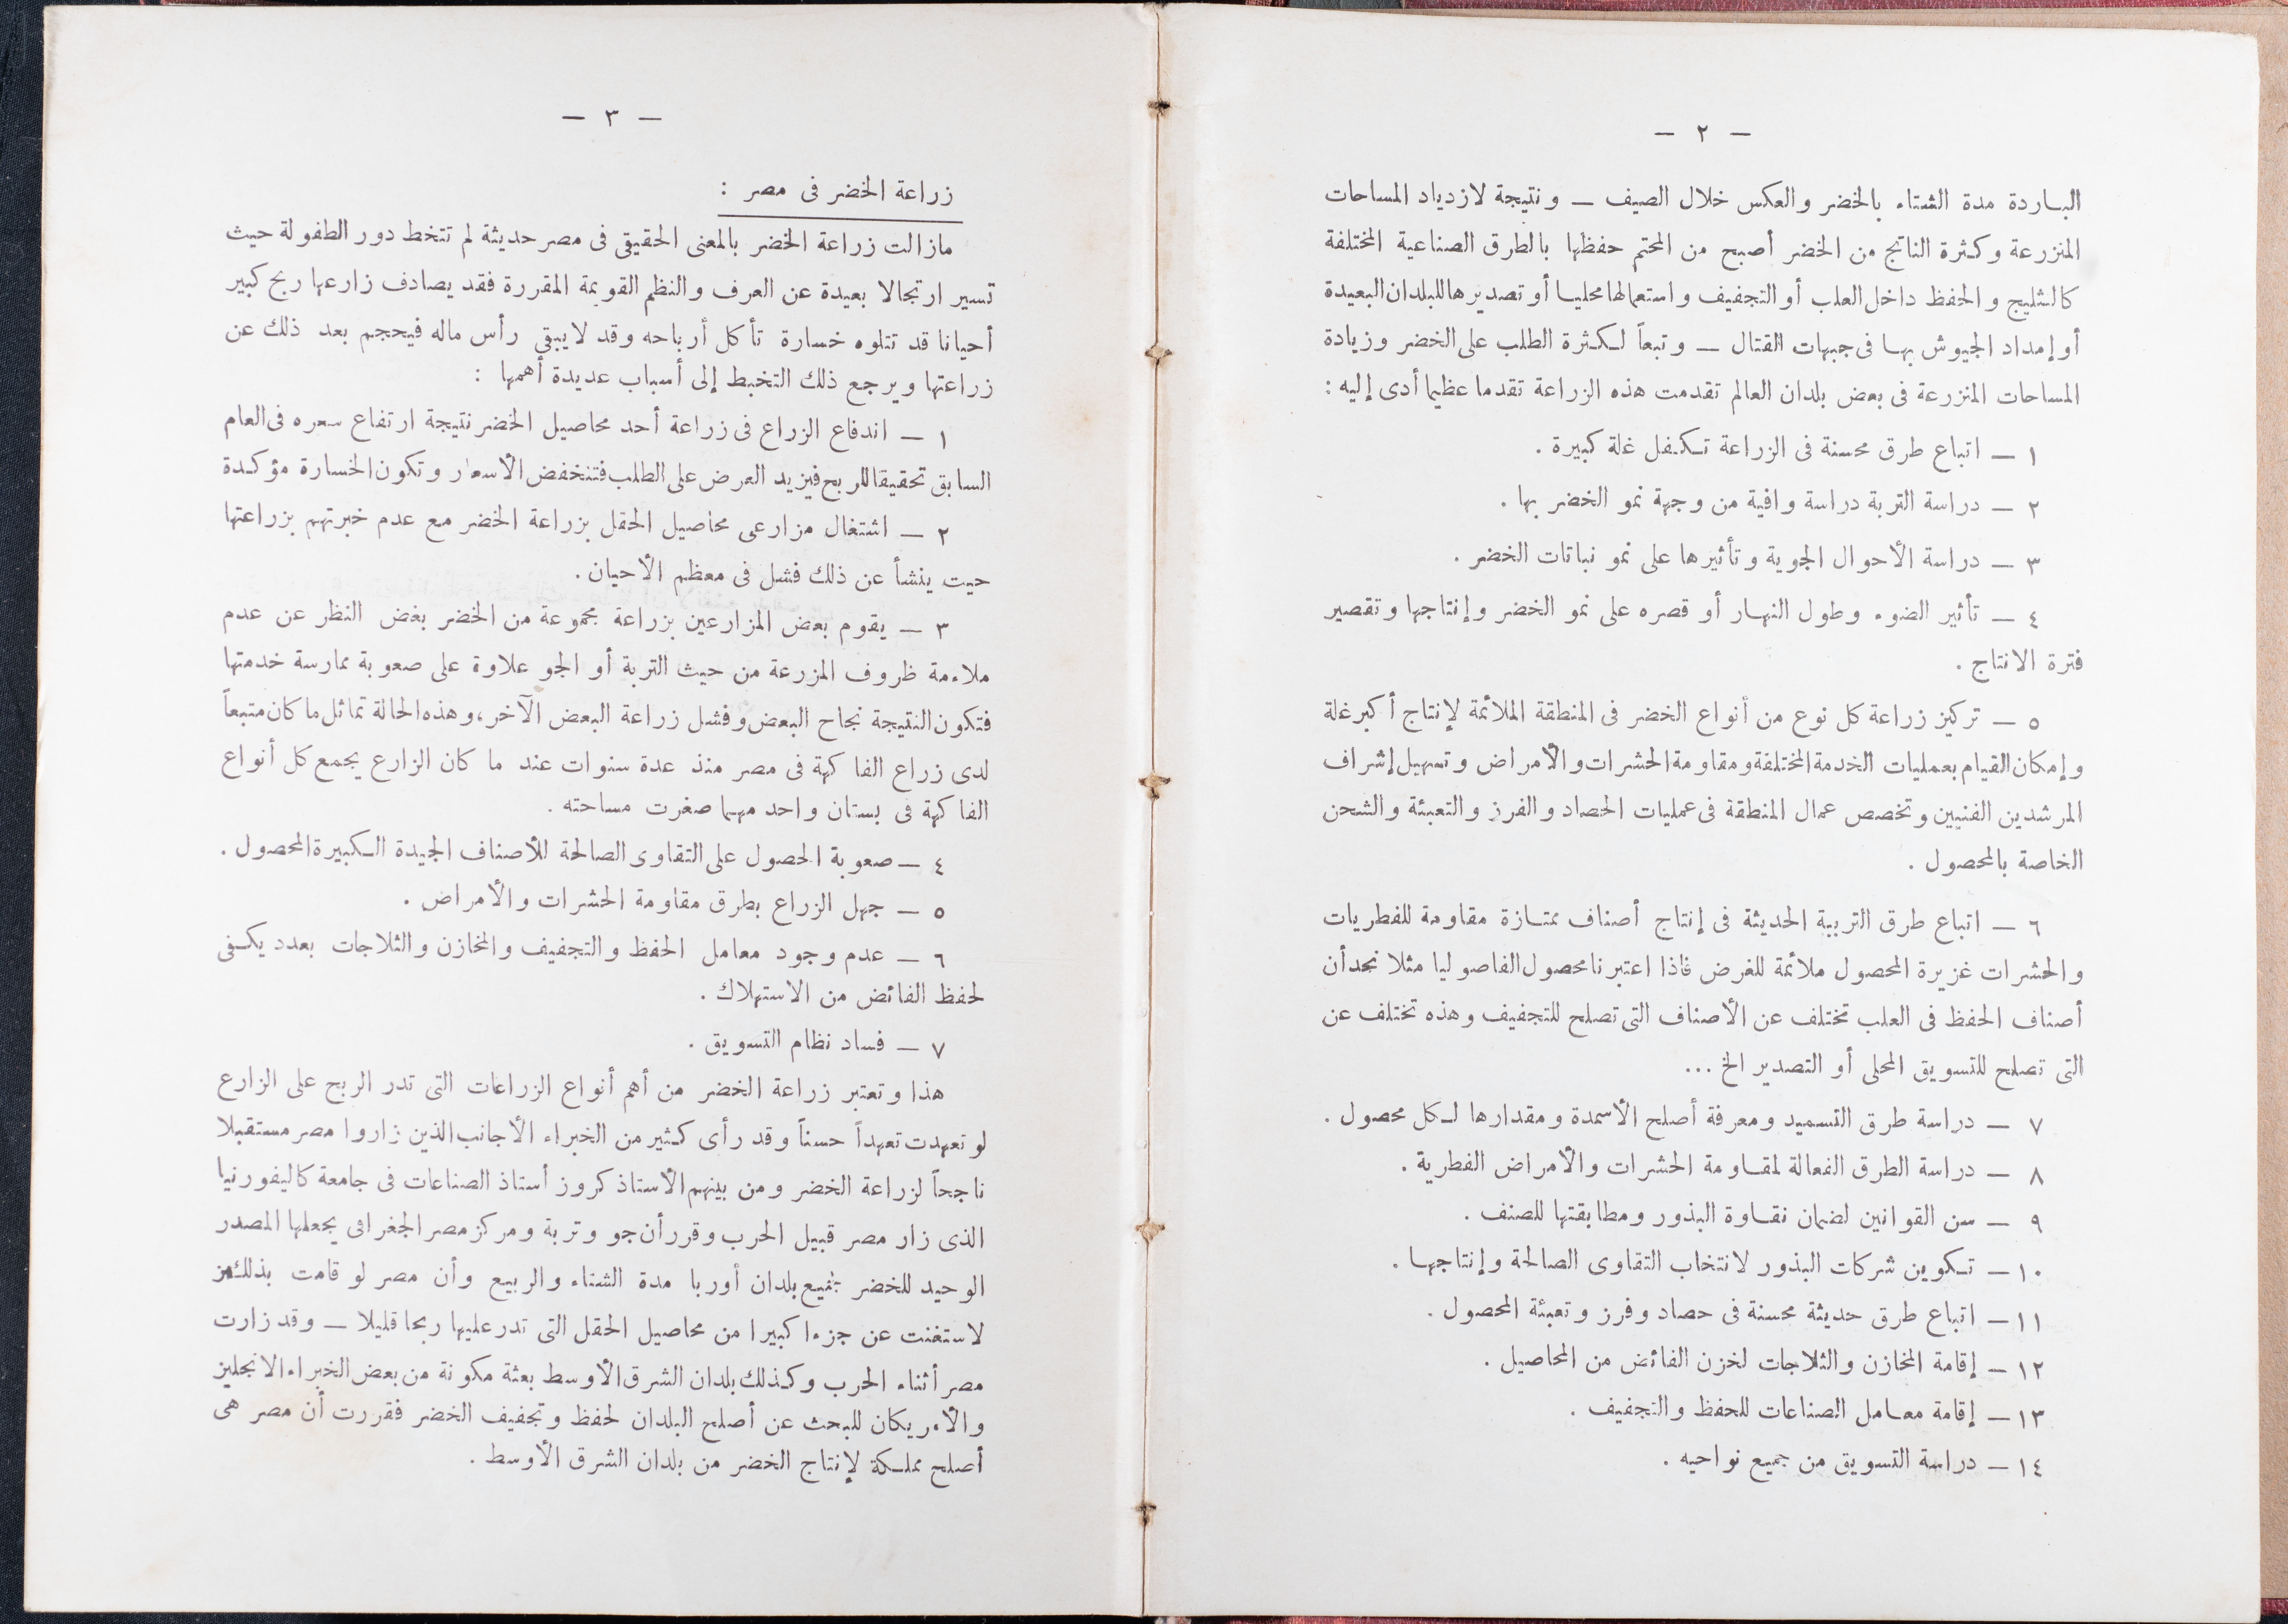 — ٢ —
البـاردة مدة الشتاء بالخضر والعكس خلال الصيف — ونتيجة لازدياد المساحات
المنزرعة وكثرة الناتج من الخضر أصبح من المحتم حفظها بالطرق الصناعية المختلفة
كالثليج والحفظ داخل العلب أو التجفيف واستعمالها محليـا أو تصديرها للبلدان البعيدة
أو إمداد الجيوش بهـا فى جبهات القتال — وتبعاً لـكثرة الطلب على الخضر وزيادة
المساحات المنزرعة فى بعض بلدان العالم تقدمت هذه الزراعة تقدما عظيما أدى إليه :
١ — اتباع طرق محسنة فى الزراعة تـكفل غلة كبيرة .
٢ — دراسة التربة دراسة وافية من وجهة نمو الخضر بها .
٣ — دراسة الأحوال الجوية وتأثيرها على نمو نباتات الخضر .
٤ — تأثير الضوء وطول النهـار أو قصره على نمو الخضر وإنتاجها وتقصير
فترة الانتاج .
٥ — تركيز زراعة كل نوع من أنواع الخضر فى المنطقة الملائمة لإنتاج أكبر غلة
وإمكان القيام بعمليات الخدمة المختلفة ومقاومة الحشرات والأمراض وتسهيل إشراف
المرشدين الفنيين وتخصص عمال المنطقة فى عمليات الحصاد والفرز والتعبئة والشحن
الخاصة بالمحصول .
٦ — اتباع طرق التربية الحديثة فى إنتاج أصناف ممتـازة مقاومة للفطريات
والحشرات غزيرة المحصول ملائمة للغرض فاذا اعتبرنا محصول الفاصوليا مثلا نجد أن
أصناف الحفظ فى العلب تختلف عن الأصناف التى تصلح للتجفيف وهذه تختلف عن
التى تصلح للتسويق المحلى أو التصدير الخ ...
٧ — دراسة طرق التسميد ومعرفة أصلح الأسمدة ومقدارها لـكل محصول .
٨ — دراسة الطرق الفعالة لمقـاومة الحشرات والأمراض الفطرية .
٩ — سن القوانين لضمان نقـاوة البذور ومطابقتها للصنف .
١٠ — تـكوين شركات البذور لانتخاب التقاوى الصالحة وإنتاجهـا .
١١ — اتباع طرق حديثة محسنة فى حصاد وفرز وتعبئة المحصول .
١٢ — إقامة المخازن والثلاجات لخزن الفائض من المحاصيل .
١٣ — إقامة معـامل الصناعات للحفظ والتجفيف .
١٤ — دراسة التسويق من جميع نواحيه .
— ٣ —
زراعة الخضر فى مصر :
مازالت زراعة الخضر بالمعنى الحقيقى فى مصر حديثة لم تتخط دور الطفولة حيث
تسير ارتجالا بعيدة عن العرف والنظم القويمة المقررة فقد يصادف زارعها ربح كبير
أحيانا قد تتلوه خسارة تأكل أرباحه وقد لا يبقى رأس ماله فيحجم بعد ذلك عن
زراعتها ويرجع ذلك التخبط إلى أسباب عديدة أهمها :
١ — اندفاع الزراع فى زراعة أحد محاصيل الخضر نتيجة ارتفاع سعره فى العام
السابق تحقيقا للربح فيزيد العرض على الطلب فتنخفض الأسعار وتكون الخسارة مؤكدة
٢ — اشتغال مزارعى محاصيل الحقل بزراعة الخضر مع عدم خبرتهم بزراعتها
حيت ينشأ عن ذلك فشل فى معظم الأحيان .
٣ — يقوم بعض المزارعين بزراعة مجموعة من الخضر بغض النظر عن عدم
ملاءمة ظروف المزرعة من حيث التربة أو الجو علاوة على صعوبة ممارسة خدمتها
فتكون النتيجة نجاح البعض وفشل زراعة البعض الآخر، وهذه الحالة تماثل ما كان متبعاً
لدى زراع الفاكهة فى مصر منذ عدة سنوات عند ما كان الزارع يجمع كل أنواع
الفاكهة فى بستان واحد مهما صغرت مساحته .
٤ — صعوبة الحصول على التقاوى الصالحة للأصناف الجيدة الـكبيرة المحصول .
٥ — جهل الزراع بطرق مقاومة الحشرات والأمراض .
٦ — عدم وجود معامل الحفظ والتجفيف والمخازن والثلاجات بعدد يكـفى
لحفظ الفائض من الاستهلاك .
٧ — فساد نظام التسويق .
هذا وتعتبر زراعة الخضر من أهم أنواع الزراعات التى تدر الربح على الزارع
لو تعهدت تعهداً حسناً وقد رأى كثير من الخبراء الأجانب الذين زاروا مصر مستقبلا
ناجحاً لزراعة الخضر ومن بينهم الأستاذ كروز أستاذ الصناعات فى جامعة كاليفورنيا
الذى زار مصر قبيل الحرب وقرر أن جو وتربة ومركز مصر الجغرافى يجعلها المصدر
الوحيد للخضر لجميع بلدان أوربا مدة الشتاء والربيع وأن مصر لو قامت بذلك
لاستغنت عن جزءا كبيرا من محاصيل الحقل التى تدر عليها ربحا قليلا — وقد زارت
مصر أثناء الحرب وكذلك بلدان الشرق الأوسط بعثة مكونة من بعض الخبراء الانجليز
والأمريكان للبحث عن أصلح البلدان لحفظ وتجفيف الخضر فقررت أن مصر هى
أصلح مملـكة لإنتاج الخضر من بلدان الشرق الأوسط .